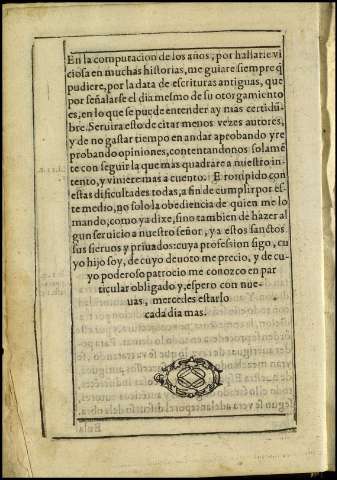 En la computacion de los años, por hallarse vi
ciosa en muchas historias, me guiare siempre q̃
pudiere, por la data de escrituras antiguas, que
por señalarse el dia mesmo de su otorgamiento
es, en lo que se puede entender ay mas certidũ-
bre. Seruira esto de citar menos vezes autores,
y de no gastar tiempo en andar aprobando y re
probando opiniones, contentandonos solamẽ
te con seguir la que mas quadrare a nuestro in-
tento, y viniere mas a cuento. E rompido con
estas dificultades todas, a fin de cumplir por es-
te medio, no solo la obediencia de quien me lo
mando, como ya dixe, sino tambien de hazer al
gun seruicio a nuestro señor, y a estos sanctos
sus sieruos y priuados: cuya profession sigo, cu
yo hijo soy, de cuyo deuoto me precio, y de cu-
yo poderoso patrocio me conozco en par
ticular obligado y, espero con nue-
uas, mercedes estarlo
cada dia mas.